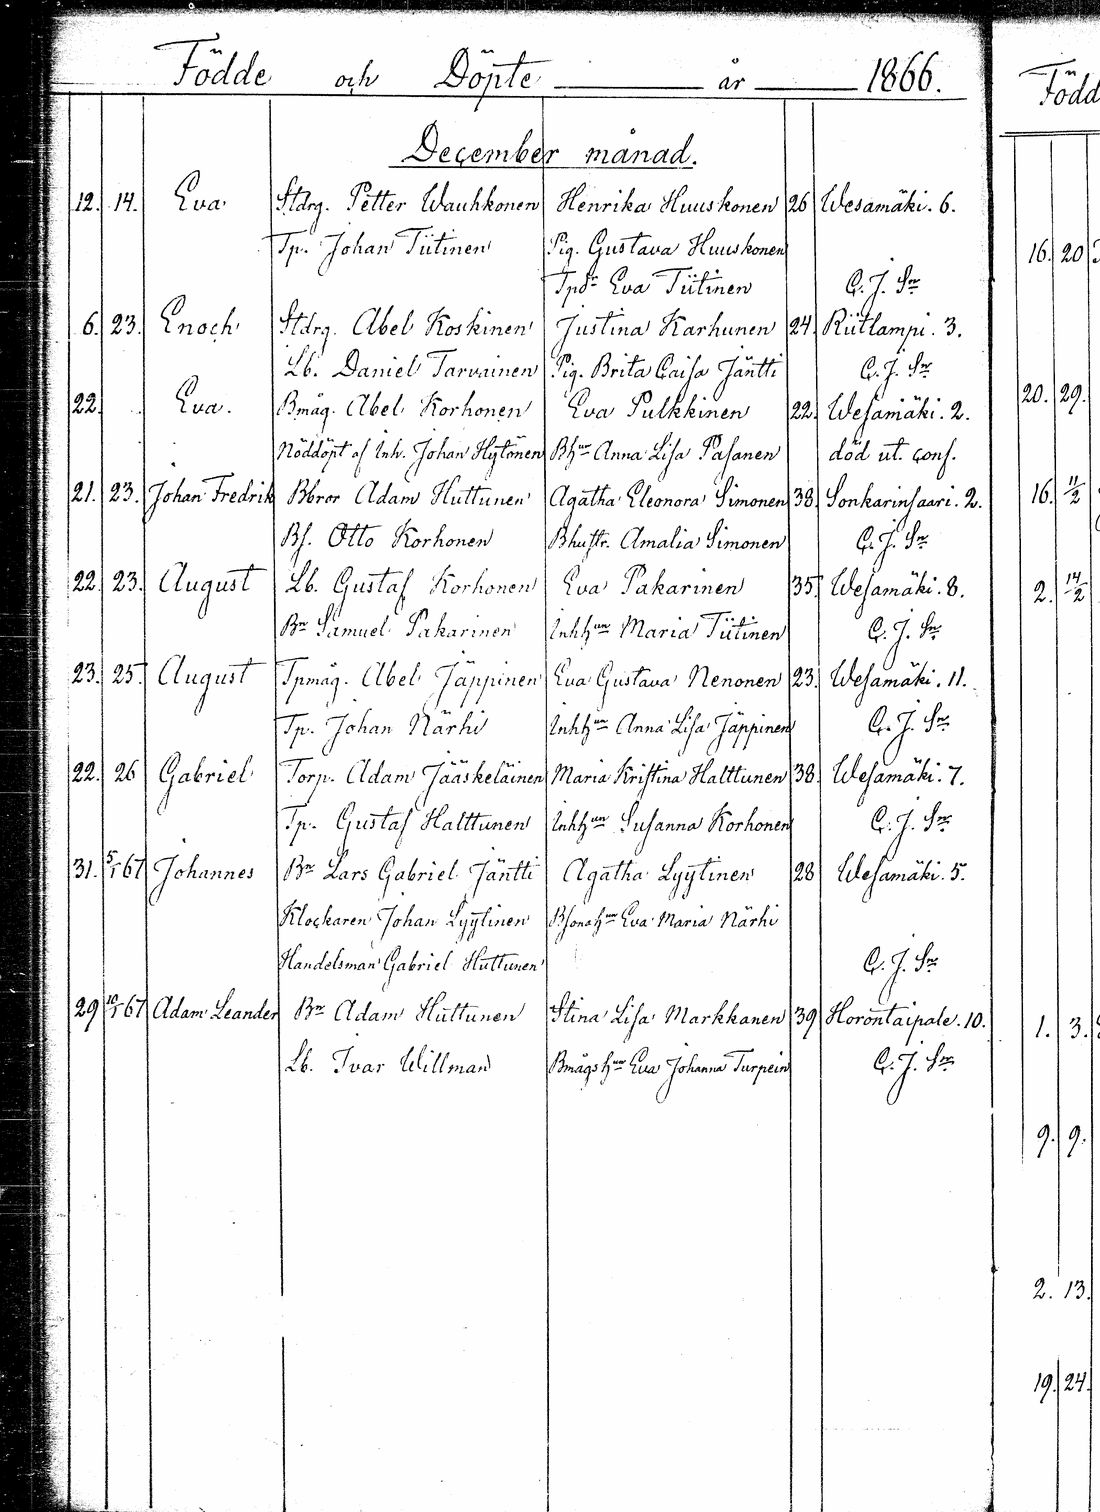 Födde och Döpte år 1866.
December månad.
12. 14. Eva Stdrg. Petter Wauhkonen Henrika Huuskonen 26 Wesamäki. 6.
Tp. Johan Tiitinen Pig. Gustava Huuskonen
Tpdr Eva Tiitinen C. J. Sn
6. 23. Enoch Stdrg. Abel Koskinen Justina Karhunen 24. Riitlampi. 3.
Lb. Daniel Tarvainen Pig. Brita Caisa Jäntti C. J. Sn
22. Eva. Bmåg. Abel Korhonen Eva Pulkkinen 22. Wesamäki. 2.
Nöddöpt af Inh. Johan Hytönen Bhun Anna Lisa Pasanen död ut. conf.
21. 23. Johan Fredrik Bbror Adam Huttunen Agatha Eleonora Simonen 38. Sonkarinsaari. 2.
Bs. Otto Korhonen Bhustr. Amalia Simonen C. J. Sn
22. 23. August Lb. Gustaf Korhonen Eva Pakarinen 35. Wesamäki. 8.
Bn Samuel Pakarinen Inhhun Maria Tiitinen C. J. Sn
23. 25. August Tpmåg. Abel Jäppinen Eva Gustava Nenonen 23. Wesamäki. 11.
Tp. Johan Närhi Inhhun Anna Lisa Jäppinen C. J. Sn
22. 26 Gabriel Torp. Adam Jääskeläinen Maria Kristina Halttunen 38. Wesamäki. 7.
Tp. Gustaf Halttunen Inhhun Susanna Korhonen C. J. Sn
31. 5/1 67 Johannes Bn Lars Gabriel Jäntti Agatha Lyytinen 28 Wesamäki. 5.
Klockaren Johan Lyytinen Bsonahun Eva Maria Närhi
Handelsman Gabriel Huttunen C. J. Sn
29 10/1 67 Adam Leander Bn Adam Huttunen Stina Lisa Markkanen 39 Horontaipale. 10.
Lb. Ivar Willman Bmågshun Eva Johanna Turpein C. J. Sn
Född
16. 20
20. 29.
16. 11/2
2. 14/2
1. 3.
9. 9.
2. 13.
19. 24.